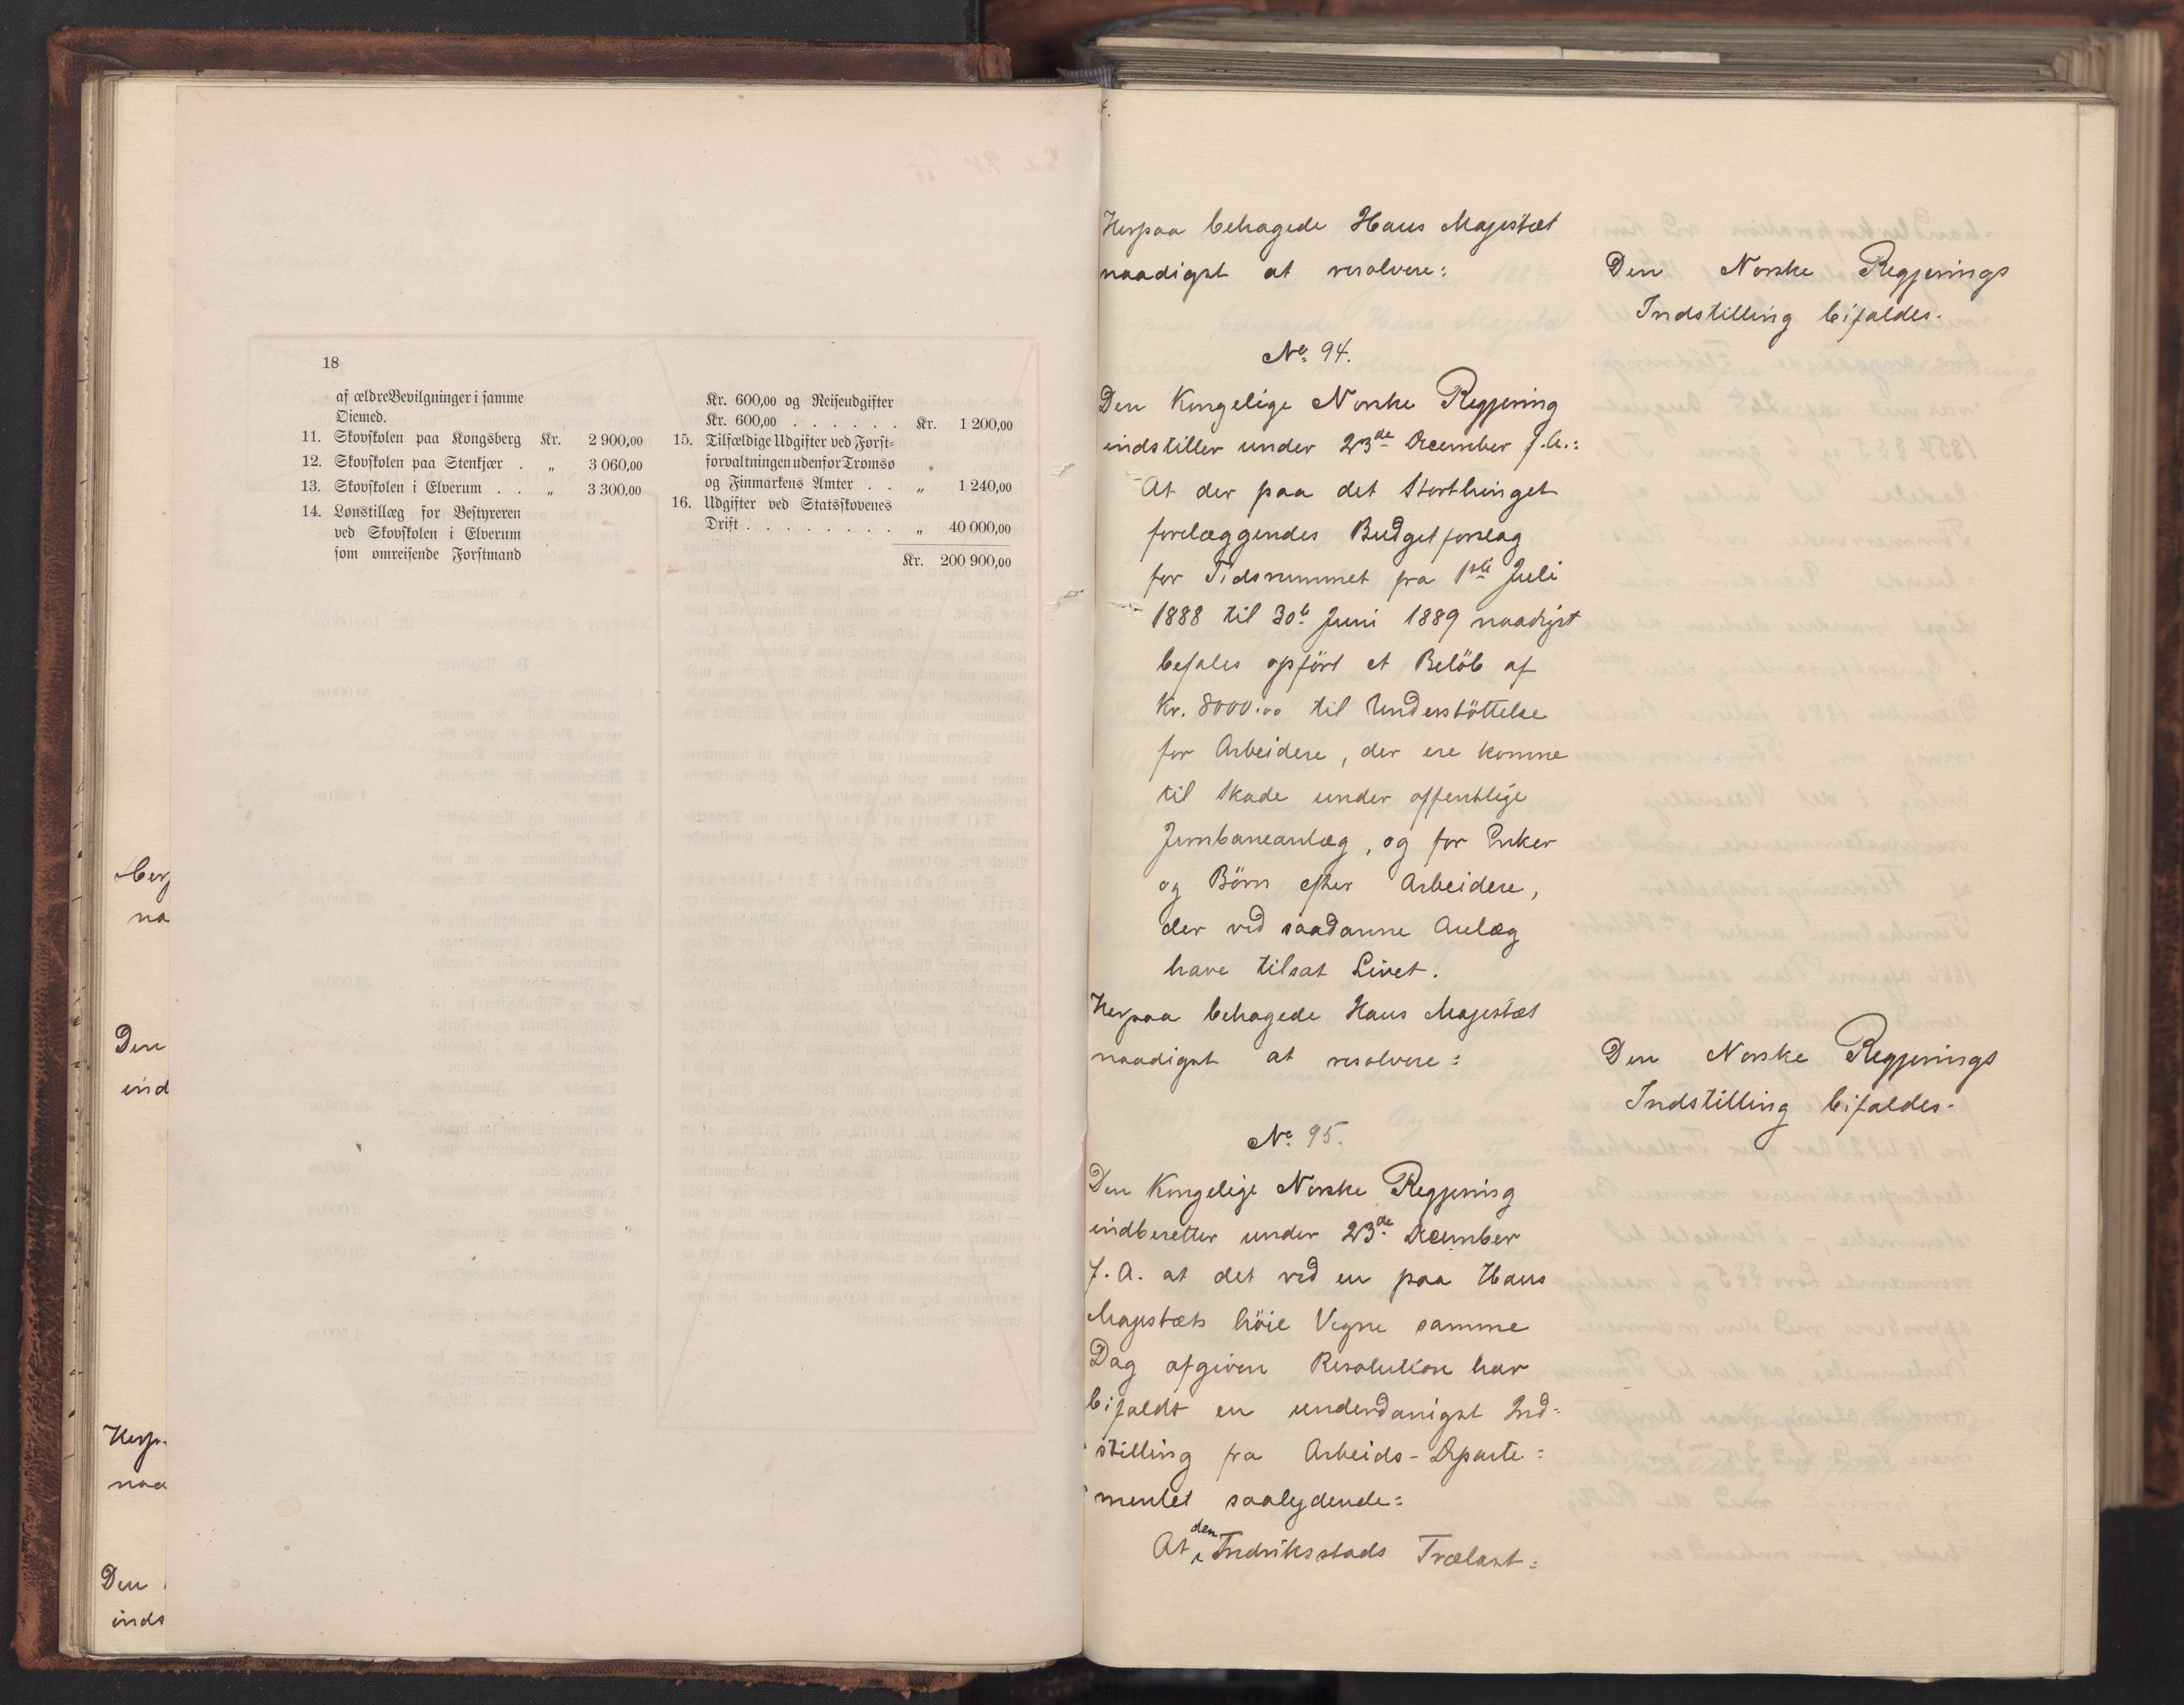 18
af ældre Bevilgninger i samme
Øiemed.
11. Skovskolen paa Kongsberg Kr. 2 900,00
12. Skovskolen paa Stenkjær . „ 3 060,00
13. Skovskolen i Elverum . . „ 3 300,00
14. Lønstillæg for Bestyreren
ved Skovskolen i Elverum
som omreisende Forstmand
Kr. 600,00 og Reiseudgifter
Kr. 600,00 . . . . . . Kr. 1 200,00
15. Tilfældige Udgifter ved Forst-
forvaltningen udenfor Tromsø
og Finmarkens Amter . . „ 1 240,00
16. Udgifter ved Statsskovenes
Drift . . . . . . . . „ 40 000,00
Kr. 200 900,00
na
Den
ind
Herp
naa
Den
inds
Herpaa behagede Hans Majestæt
naadigst at resolvere:
Den Norske Regjerings
Indstilling bifaldes.
No. 94.
Den Kongelige Norske Regjering
indstiller under 23de December f. A.:
At der paa det Storthinget
forelæggendes Budgetforslag
for Tidsrummet fra 1ste Juli
1888 til 30te Juni 1889 naadigst
befales opført et Beløb af
Kr. 8000.00 til Understöttelse
for Arbeidere, der ere komne
til Skade under offentlige
Jernbaneanlæg, og for Enker
og Börn efter Arbeidere,
der ved saadanne Anlæg
have tilsat Livet.
Herpaa behagede Hans Majestæt
naadigst at resolvere:
Den Norske Regjerings
Indstilling bifaldes.
No. 95.
Den Kongelige Norske Regjering
indberetter under 23de December
f. A. at det ved en paa Hans
Majestæts höie Vegne samme
Dag afgiven Resolution har
bifaldt en underdanigst Ind=
stilling fra Arbeids-Departe=
mentet saalydende:
At den Fredriksstads Trælast=